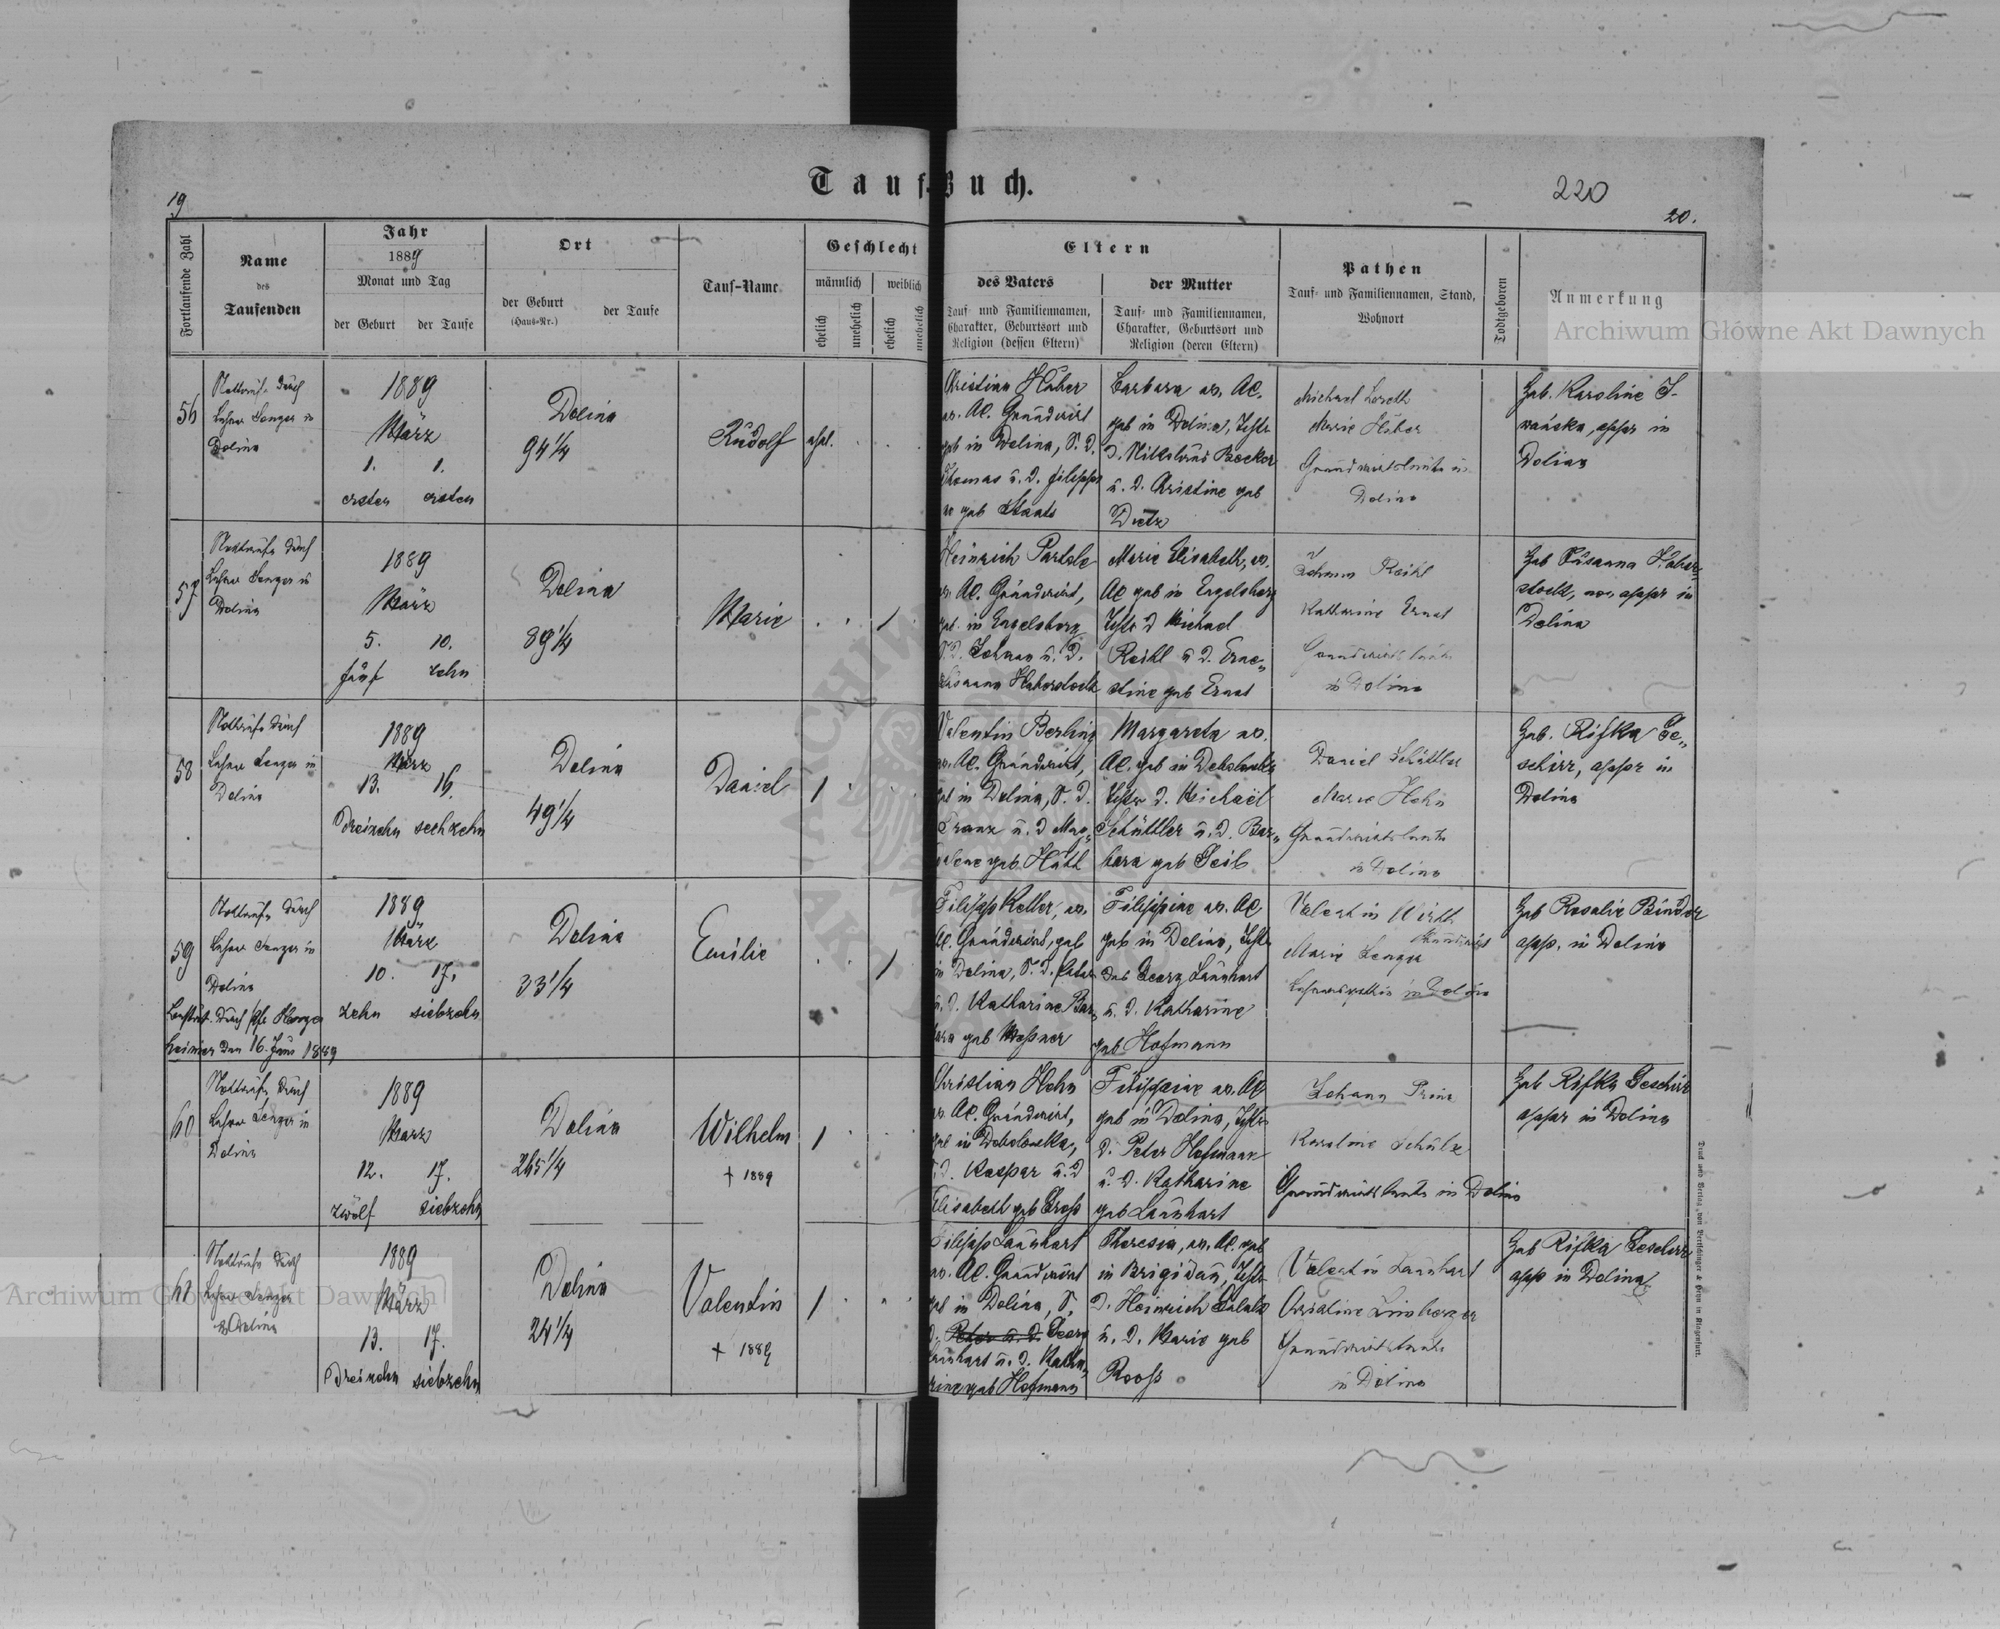 Tauf-Buch.
19
220
20.
Fortlaufende Zahl
Name
des
Taufenden
Jahr
1889
Monat und Tag
der Geburt
der Taufe
Ort
der Geburt
(Haus-Nr.)
der Taufe
Tauf-Name
Geschlecht
männlich
weiblich
ehelich
unehelich
ehelich
unehelich
Eltern
des Vaters
Tauf- und Familiennamen,
Charakter, Geburtsort und
Religion (dessen Eltern)
der Mutter
Tauf- und Familiennamen,
Charakter, Geburtsort und
Religion (deren Eltern)
Pathen
Tauf- und Familiennamen, Stand,
Wohnort
Todtgeboren
Anmerkung
Archiwum Główne Akt Dawnych
56
Nottaufe durch
Lehrer Senger in
Dolina
1889
März
1. 1.
ersten ersten
Dolina
94 1/4
Rudolf
ehel.
Kristian Huber
ev. AC. Grundwirt
geb in Dolina, S. d.
Thomas u. d. Filippi
geb Staats
Barbara ev. AC.
geb in Dolina, Tcht
d. Nikolaus Becker
u. d. Kristine geb
Dietz
Michael
Marie Huber
Grundwirtsleute in
Dolina
Geb. Karoline I-
wańska, appr in
Dolina
57
Nottaufe durch
Lehrer Senger in
Dolina
1889
März
5. 10.
fünf zehn
Dolina
89 1/4
Marie
Heinrich
ev. AC. Grundwirt,
geb. in Engelsberg
S. d. Johann u. d.
Susanna Haberstock
Marie Elisabeth, ev.
AC geb in Engelsberg
Tcht d Michael
Reihl u d. Erne-
stine geb Ernst
Johann Reihl
Katharine Ernst
Grundwirtsleute
in Dolina
Geb Susanna Haber-
stock, appr in
Dolina
58
Nottaufe durch
Lehrer Senger in
Dolina
1889
März
13. 16.
Dreizehn sechzehn
Dolina
49 1/4
Daniel
Valentin Berling
ev. AC. Grundwirt,
geb in Dolina, S. d.
Franz u. d Mag-
dalene geb
Margareta ev.
AC. geb in
Tcht d. Michael
Schüttler u. d. Bar-
bara geb Seib
Daniel Schüttler
Marie Hohn
Grundwirtsleute
in Dolina
Geb. Rifka Ge-
schirr, appr in
Dolina
59
Nottaufe durch
Lehrer Senger in
Dolina
durch
den 16. Juni 1889
1889
März
10. 17.
zehn siebzehn
Dolina
33 1/4
Emilie
Filipp Keller, ev.
AC. Grundwirt, geb
in Dolina, S. d. Peter
u. d. Katharine Bar-
bara geb Messner
Filippine ev. AC
geb in Dolina, Tcht
des Georg Launhart
u. d. Katharine
geb Hofmann
Valentin Wirth
Grundwirt
Marie Senger
in Dolina
Geb Rosalie Binder
app. in Dolina
60
Nottaufe durch
Lehrer Senger in
Dolina
1889
März
12. 17.
zwölf siebzehn
Dolina
265 1/4
Wilhelm
+ 1889
Kristian Hohn
ev. AC. Grundwirt,
geb in
S. d. Kaspar u. d
Elisabeth geb Gross
Filippine ev. AC
geb in Dolina, Tcht
d. Peter Hofmann
u. d. Katharine
geb Launhart
Johann Prinz
Karoline Schulz
Grundwirtsleute in Dolina
Geb Rifka Geschirr
appr in Dolina
61
Nottaufe durch
Lehrer Senger
in Dolina
1889
März
13. 17.
Dreizehn siebzehn
Dolina
24 1/4
Valentin
+ 1889
Filipp Launhart
ev. AC. Grundwirt
geb in Dolina, S.
d. Peter u. d. Georg
Launhart u. d. Katha-
rine geb Hofmann
Theresia, ev. AC. geb
in Brigidau, Tcht
d. Heinrich
u. d. Marie geb
Rooss
Valentin Launhart
Kristine
Grundwirtsleute
in Dolina
Geb Rifka Geschirr
app in Dolina
Archiwum Główne Akt Dawnych